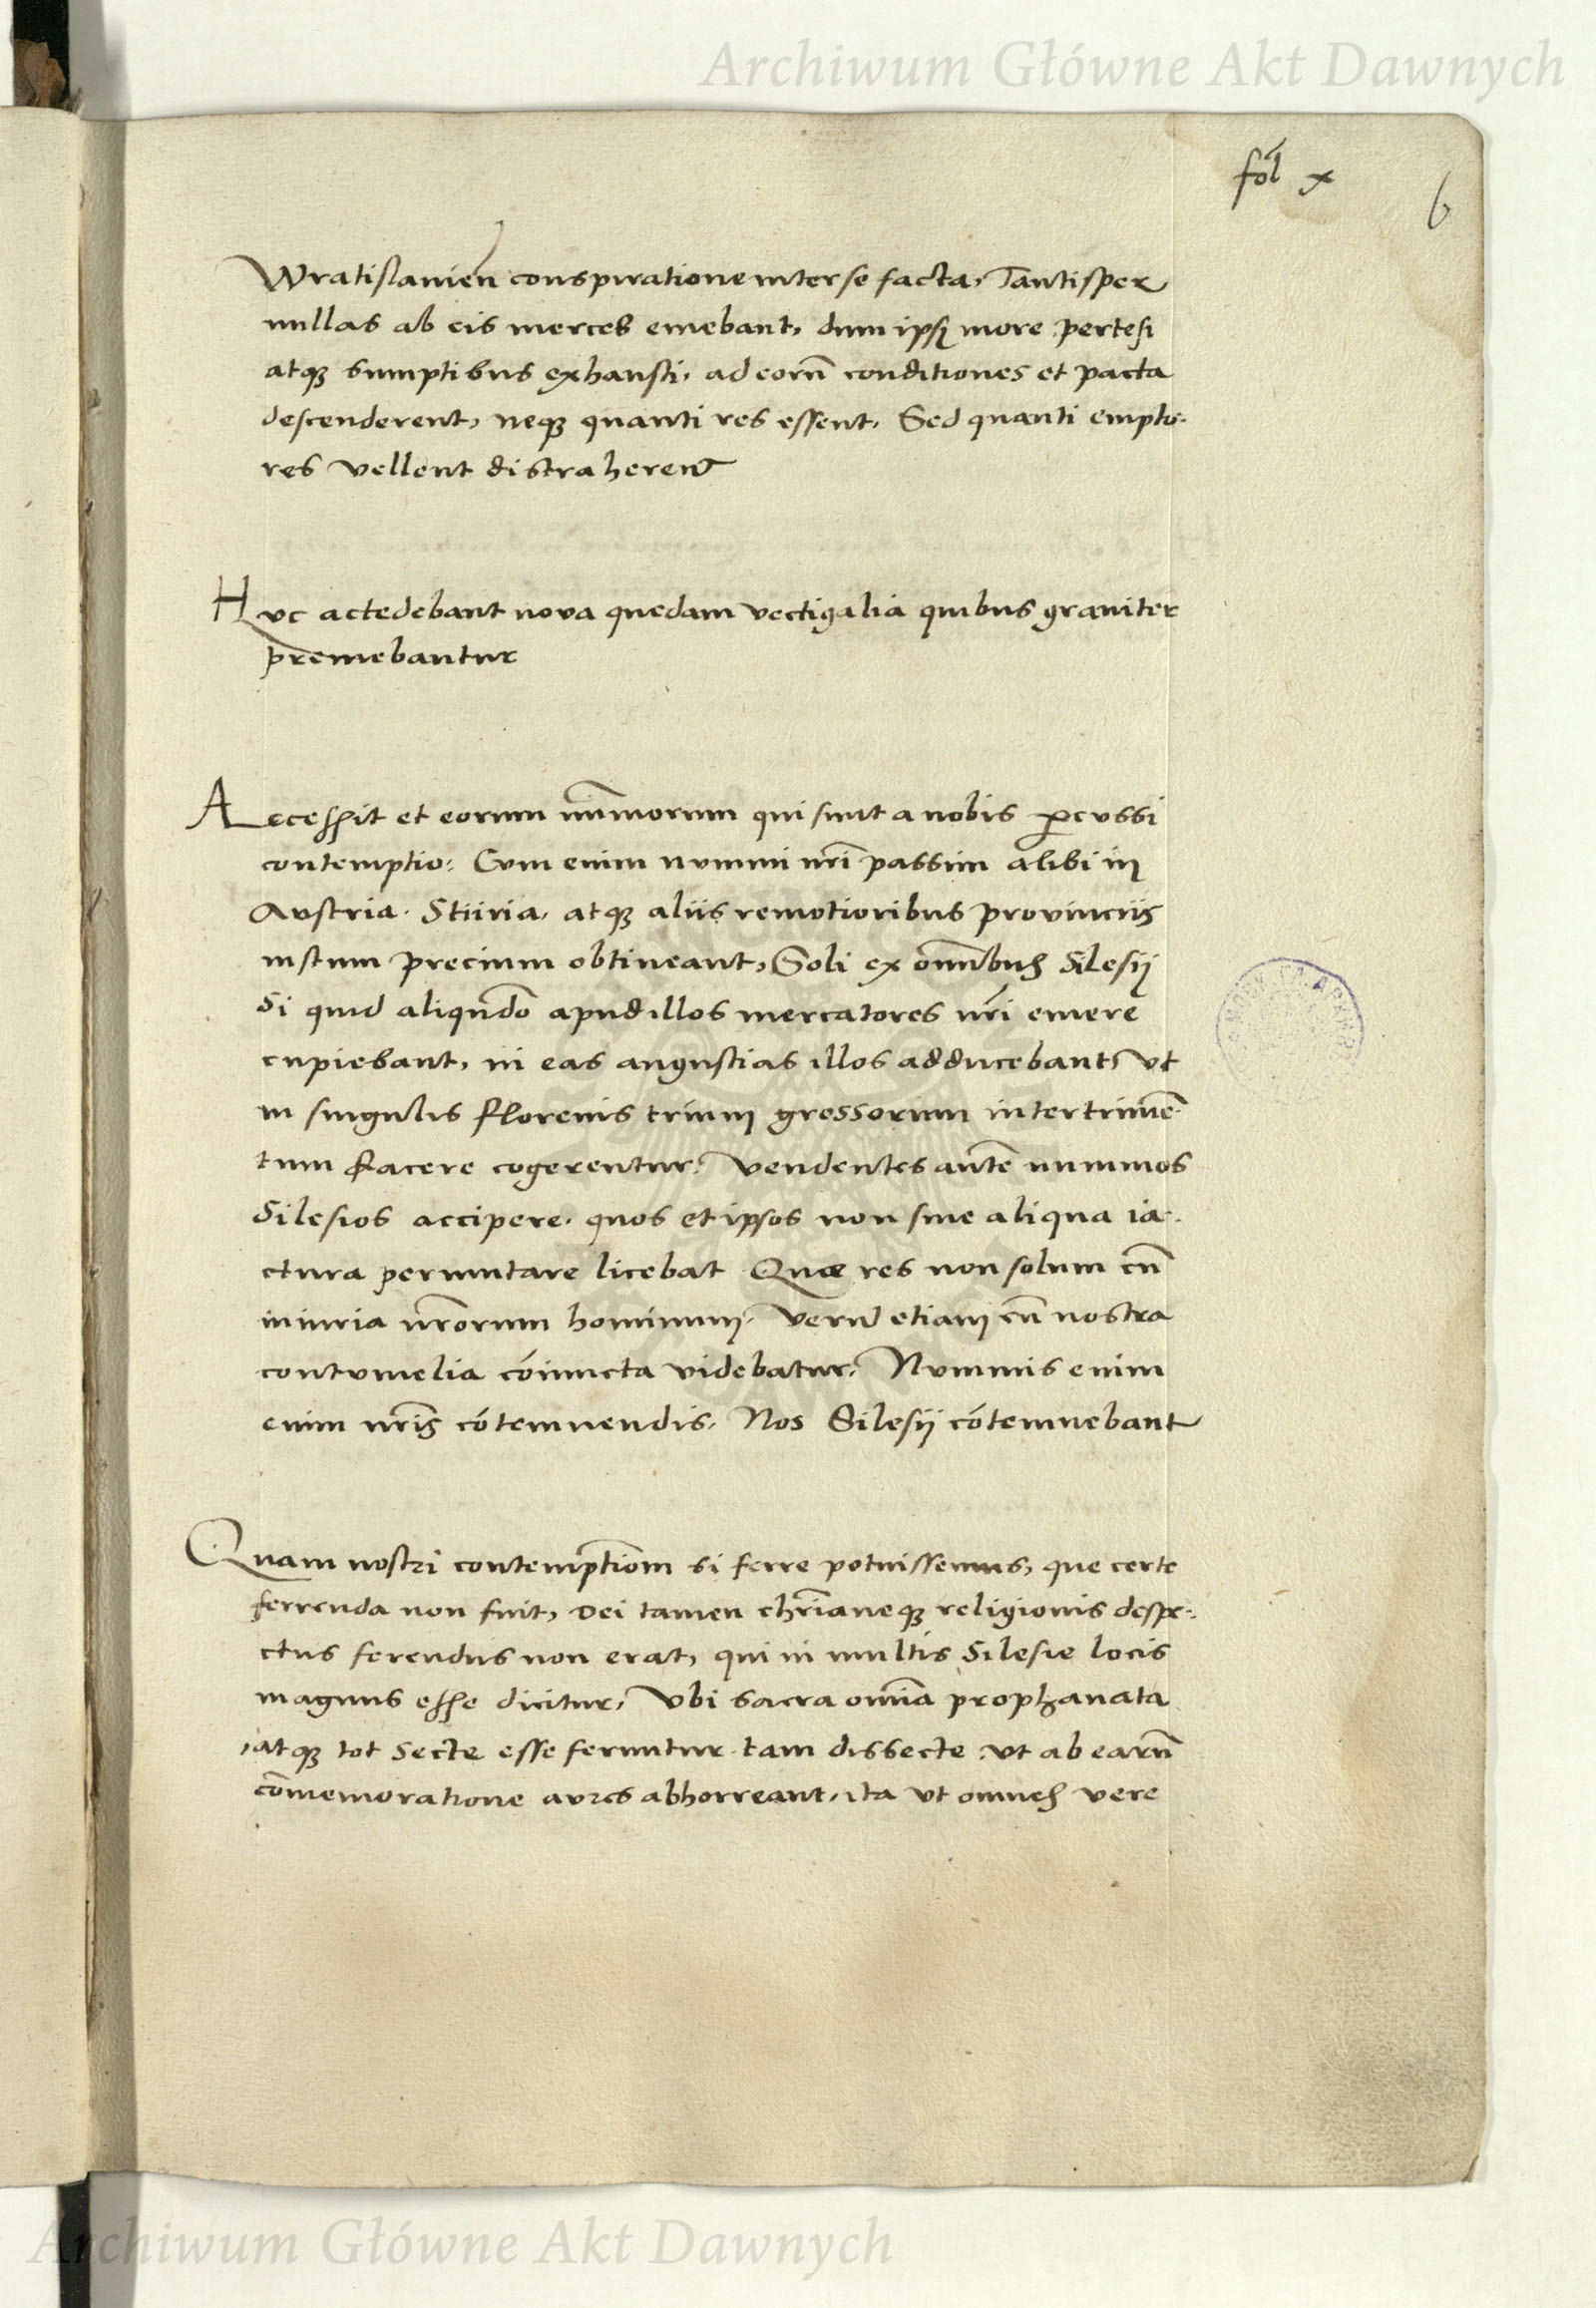 Archiwum Główne Akt Dawnych
fol x
6
Wratislavien conspiratione inter se facta, Tantisper
nullas ab eis merces emebant, dum ipsi more pertesi
atq sumptibus exhausti, ad eorū conditiones et pacta
descenderent, neq quanti res essent, Sed quanti empto-
res vellent distraherent
Huc accedebant nova quedam vectigalia quibus graviter
premebantur
Accessit et eorum nūmorum qui sunt a nobis percussi
contemptio: Cum enim nummi nri passim alibi in
Austria. Stiiria, atq aliis remotioribus provinciis
iustum precium obtineant, Soli ex omībus Silesij
Si quid aliqūdo apud illos mercatores nri emere
cupiebant, in eas angustias illos adducebant, ut
in singulis florenis trium grossorum intertrimē-
tum facere cogerentur. Vendentes autē nummos
Silesios accipere. quos et ipsos non sine aliqua ia-
ctura permutare licebat. Quae res non solum cū
iniuria nrorum hominum. Verū etiam cū nostra
contumelia cōiuncta videbatur. Nummis enim
enim nris cōtemnendis. Nos Silesij cōtemnebant
Quam nostri contemptiōm si ferre potuissemus, que certe
ferrenda non fuit, Dei tamen chrianeq religionis despe-
ctus ferendus non erat, qui in multis Silesie locis
magnus esse dicitur, Vbi sacra omīa prophanata
atq tot Secte esse feruntur tam dissecte ut ab earū
cōmemoratione aures abhorreant, ita ut omnes vere
Archiwum Główne Akt Dawnych